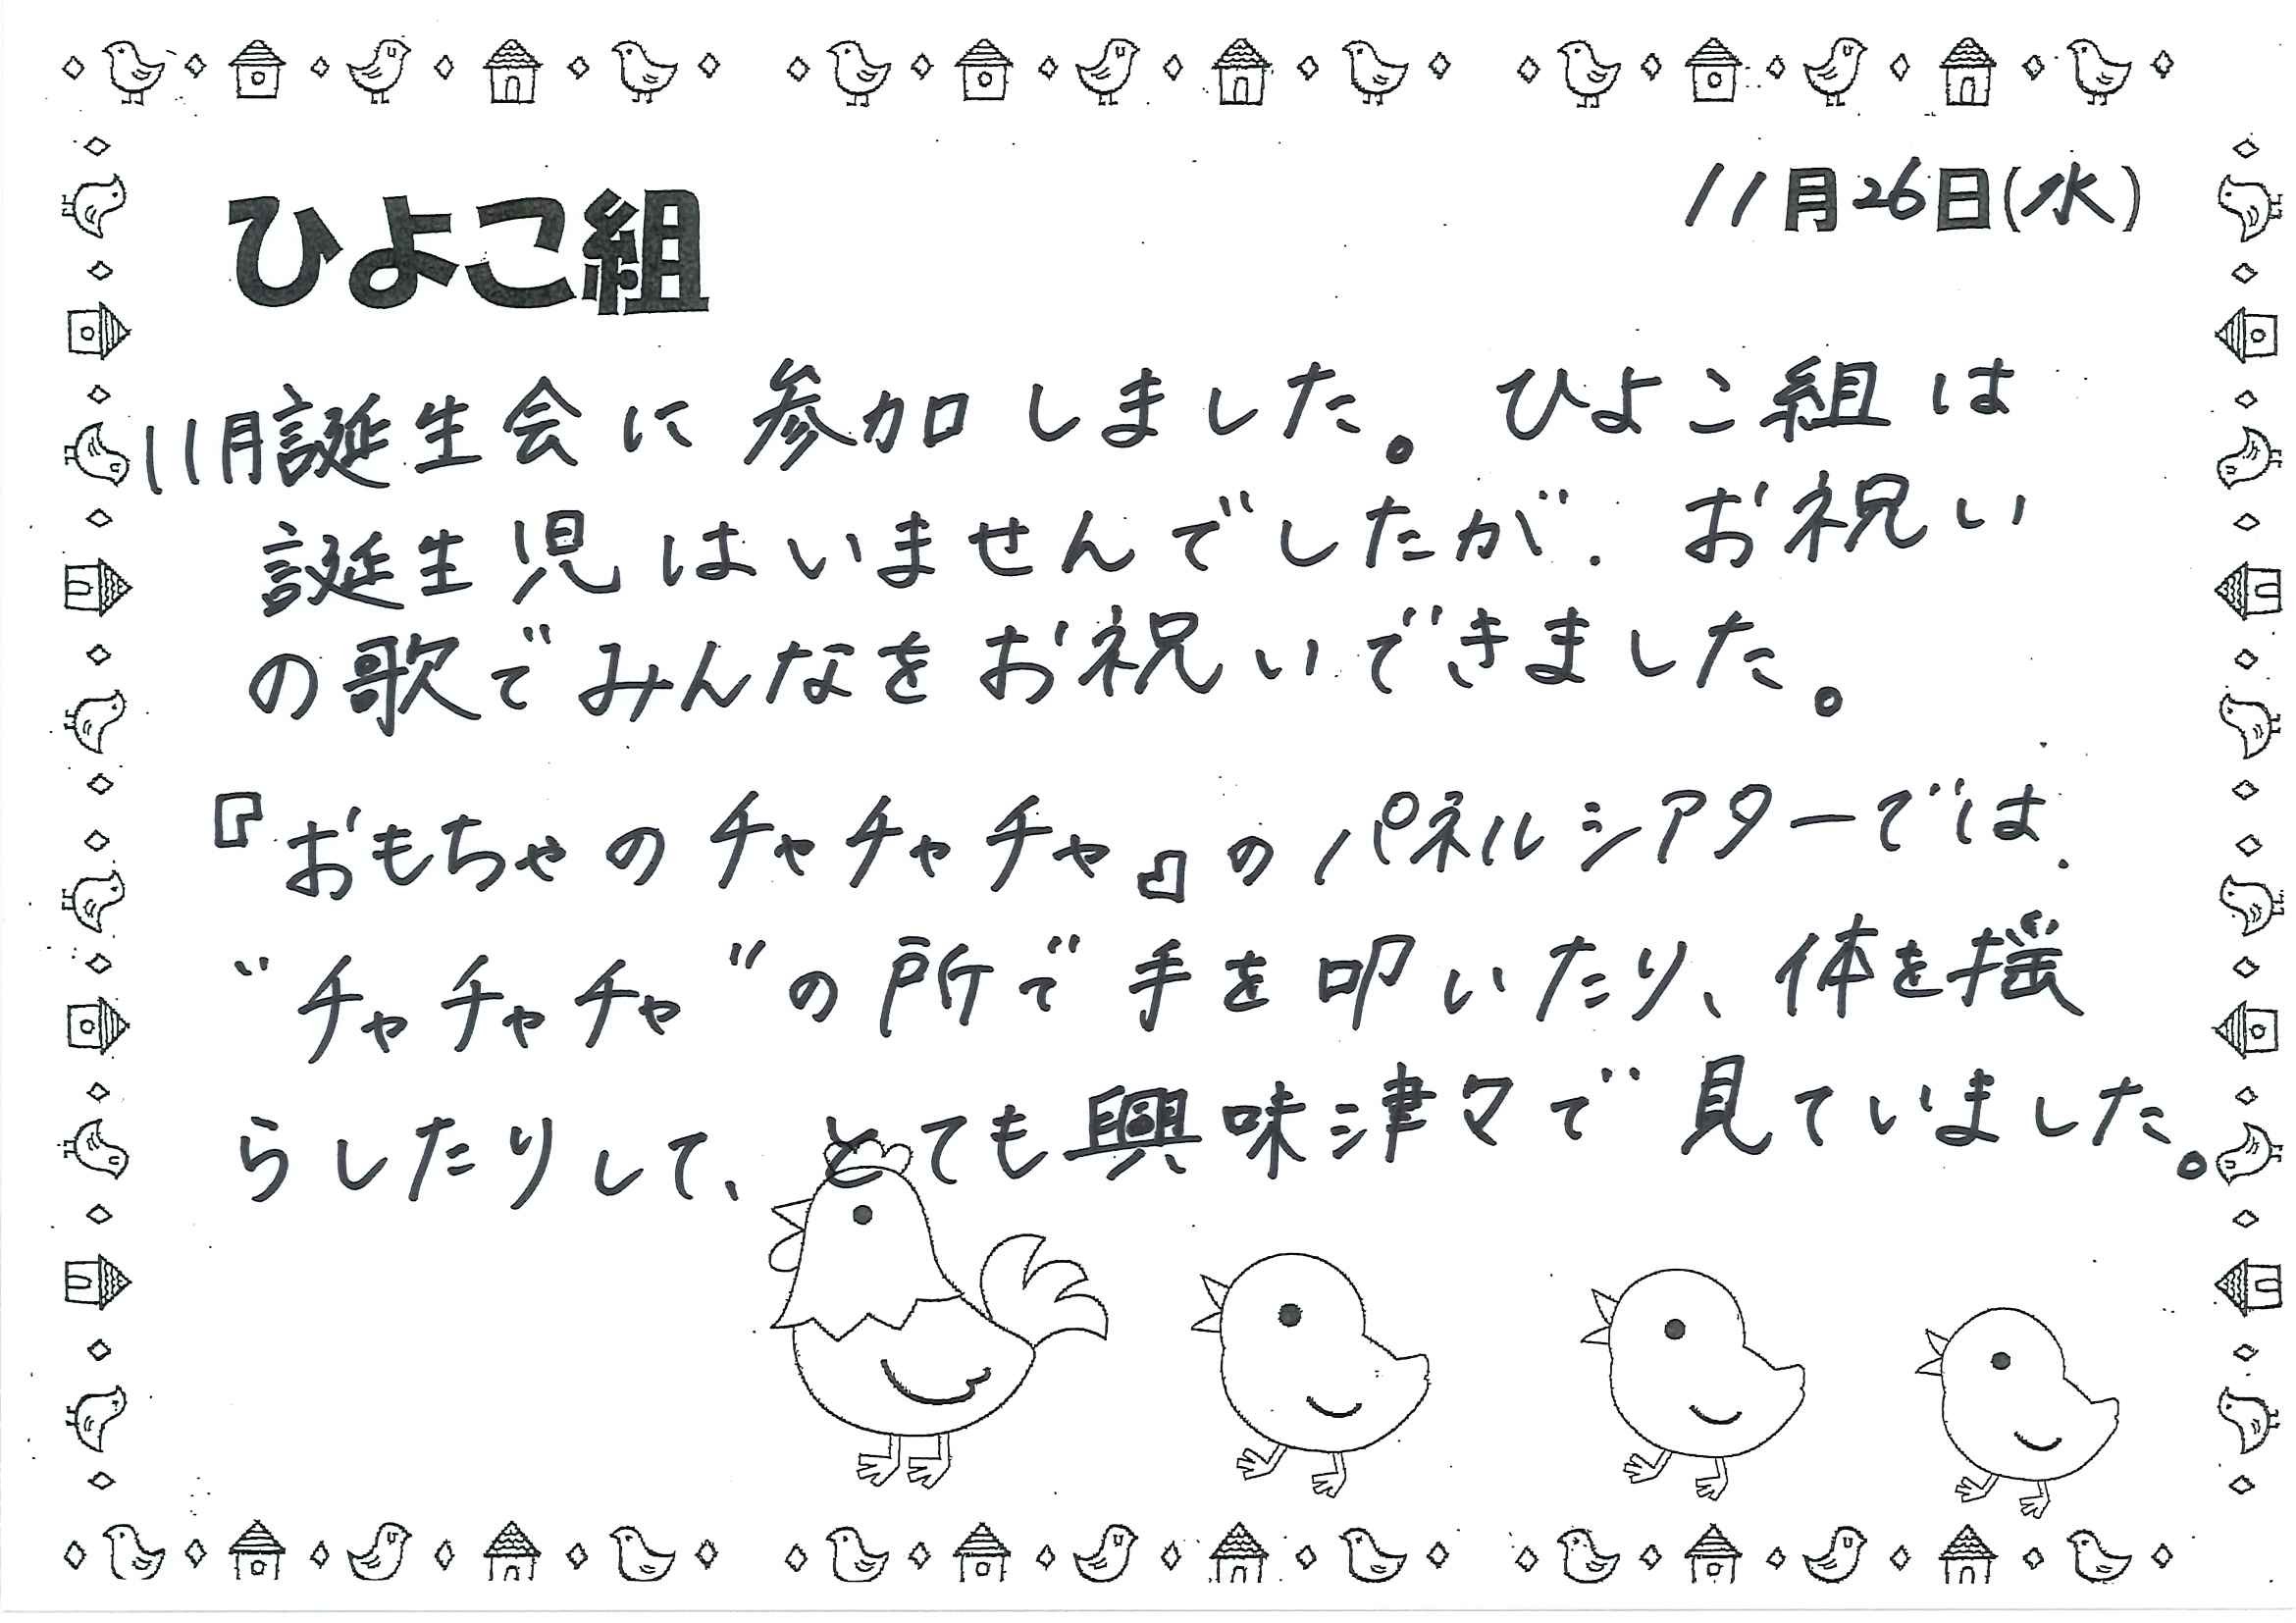 11月26日(水)
ひよこ組
11月誕生会に参加しました。ひよこ組は
誕生児はいませんでしたが、お祝い
の歌でみんなをお祝いできました。
『おもちゃのチャチャチャ』のパネルシアターでは、
“チャチャチャ”の所で手を叩いたり、体を揺
らしたりして、とても興味津々で見ていました。